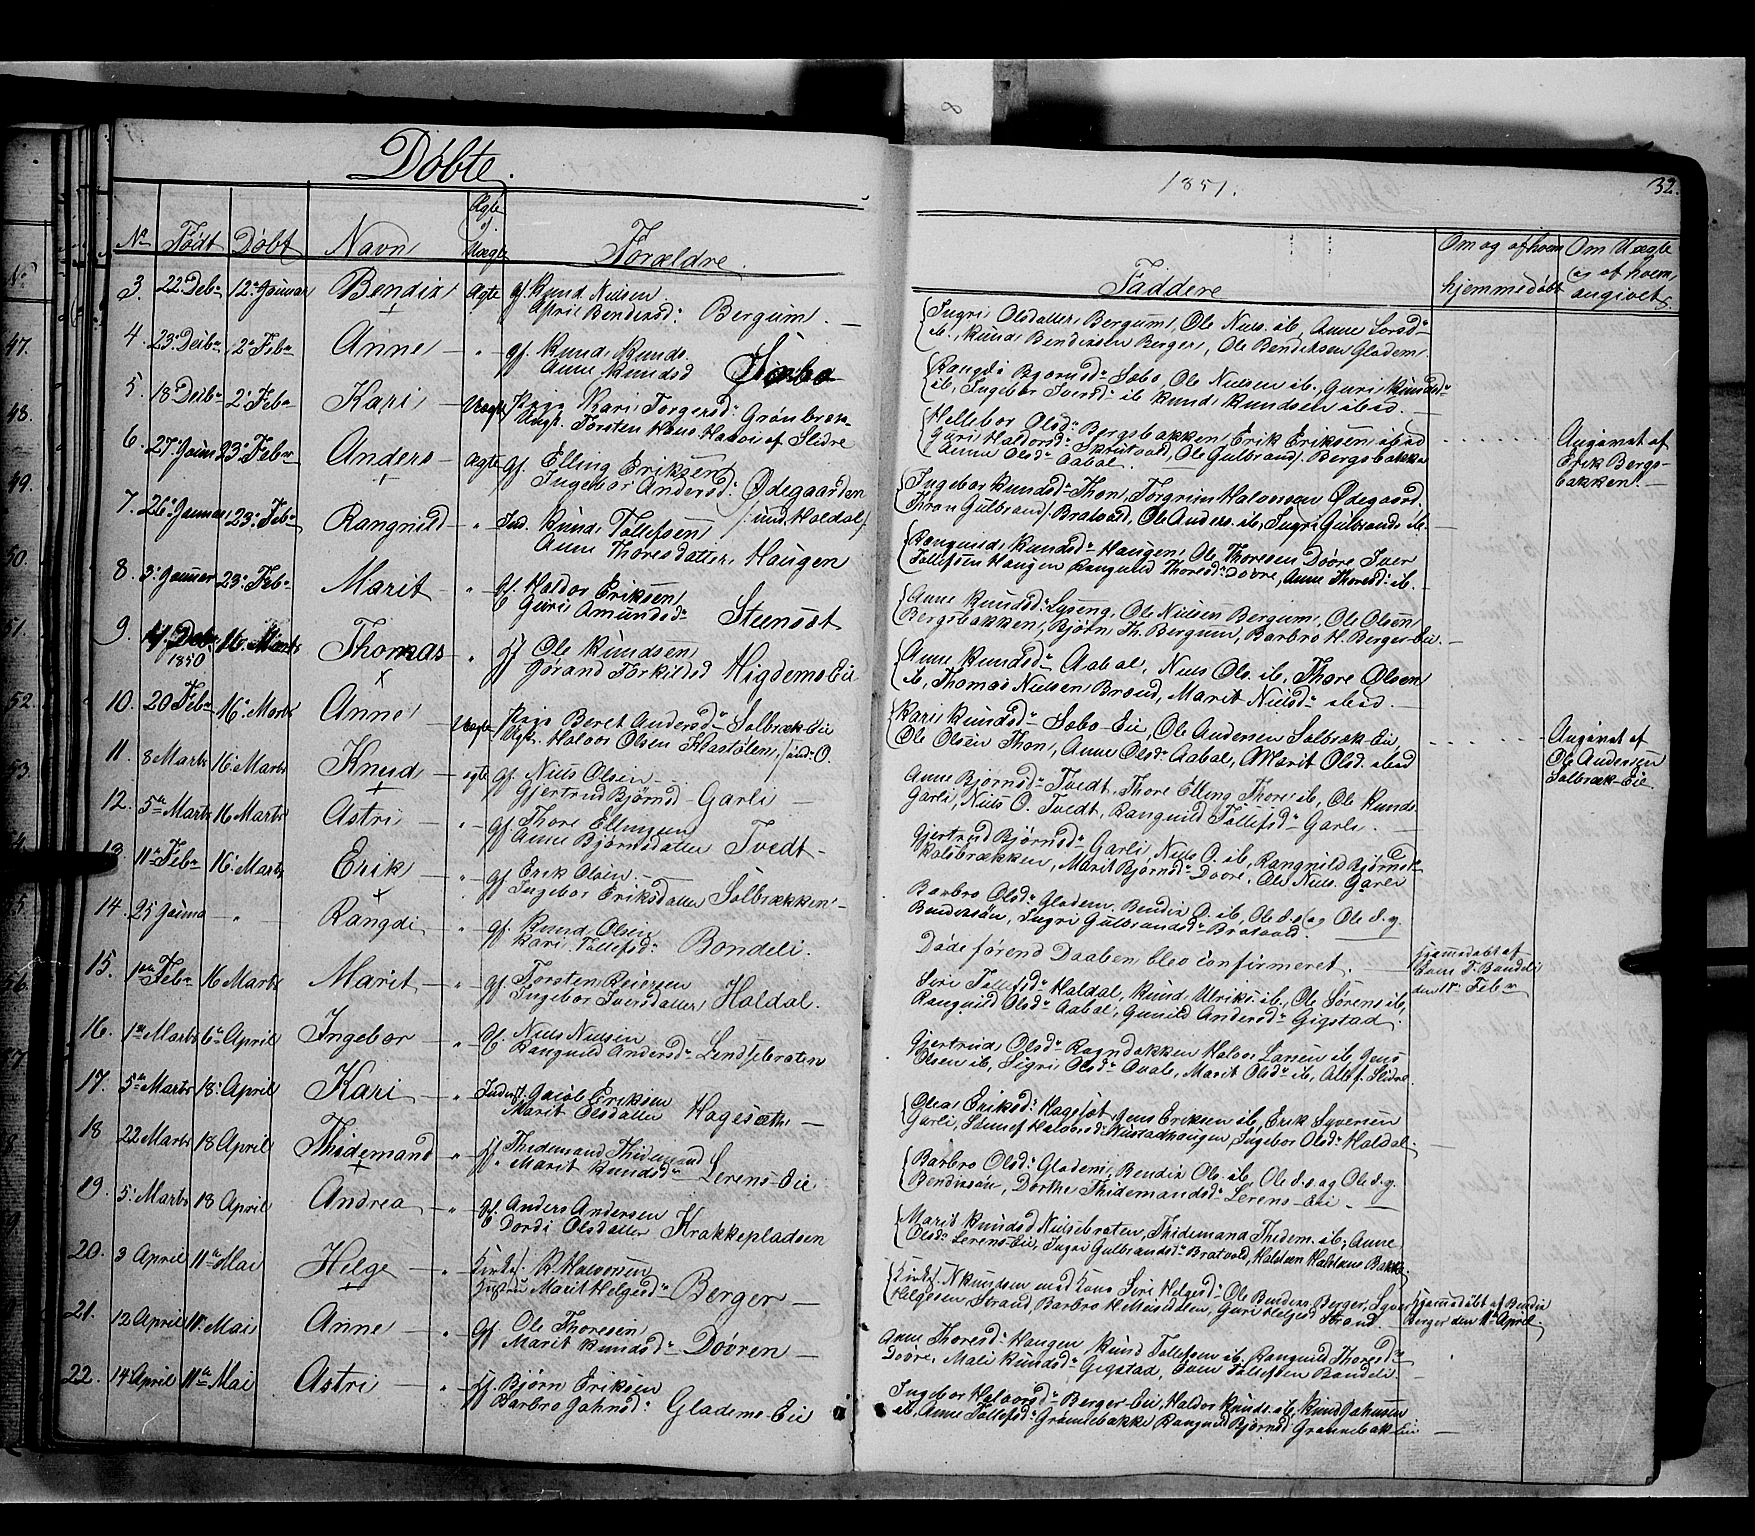 Døbte.
1851.
32.
No Født Døbt Navn Ægte el. Uægte Forældre.
Faddere
Om og af hvem hjemmedøbt
Om Uægte og af hvem angivet
3. 22 Deb 12 Januar Bendix Ægte gf. Knud Nielsen
Bendixsd: Bergum. —
Ingri Olsdatter Bergum, Ole Niels. ib, Anne
ib. Knud Bendixsen Berger, Ole Bendixsen Gladem.
4. 23 Deibr 2 Feb Anne — " gf. Knud Knuds.
Anne Knudsd
Rangdi Bjørnsd: Søbo, Ole Nielsen ib, Guri Knudsd
ib, Ingebor Iversd: ib Knud Knudsen ibid. —
5. 18 Deibr 2 Feb Kari — Uægte Pige Kari Torgersd: Grønbrek-
Ungk. Torsten Hans af Slidre
Hellebor Olsd: Bergsbakken, Erik Eriksen ibid
Guri Haldorsd: Skrutvold, Ole Gulbrands. Bergsbakke
Anne Olsd: Aabal.
Angivet af
Erik Bergs-
bakken. —
6. 27 Janr 23 Feb Anders — Ægte gf. Elling Eriksen
Ingebor Andersd: Ødegaarden
/: und. Haldal
Ingebor Knudsd: Thon, Torgrim Halvorsen Ødegaard,
Thron Gulbrands. Bratvold, Ole Anders. ib, Ingri Gulbrands ib.
7. 26 Januar 23 Feb Rangnild — " Ind. Knud Tollefsen
Anne Thoresdatter Haugen
Ranguild Knudsd: Haugen, Ole Thoresen Døvre Iver
Tollefsen Haugen Ranguild Thoresd: Døvre, Anne Thoresd: ib. —
8. 3 Januar 23 Feb Marit — " gf. Haldor Eriksen
Guri Amundsd: Steensæt
Anne Knudsd: Lyseng, Ole Nielsen Bergum, Ole Olsen
Bergsbakken, Bjørn Th. Bergum, Barbro H. Berger-Eie. —
9. Deb 1850 16 Marts Thomas — " gf Ole Knudsen
Jørand Torkildsd Higdems Eie
Anne Knudsd: Aabal, Niels Ols. ib, Thore Olsen
ib, Thomas Nielsen Broud, Marit Nielsd: ibid. —
10. 20 Feb 16 Marts Anne — Uægte Pige Beret Andersd: Solbræk-Eie
Ungk. Halvor Olsen
Kari Knudsd: Søbo-Eie, Ole Andersen Solbræk-Eie,
Ole Olsen Thon, Anne Olsd: Aabal, Marit Olsd ibid
Angivet af
Ole Andersen
Solbræk-Eie
11. 8 Marts 16 Marts Knud — ægte gf. Niels Olsen —
Gjertrud Bjørnsd Garli —
Anne Bjørnsd: Tvedt, Thore Elling Thore ib, Ole Knuds
Garli, Niels O. Tvedt, Ranguild Tollefsd: Garli. —
12. 5te Marts 16 Marts Astri — " gf Thore Ellingsen
Anne Bjørnsdatter Tvedt —
Gjertrud Bjørnsd: Garli, Niels O. ib, Rangnild Bjørnsd:
Kolsbrækken, Marit Bjørnsd: Døvre, Ole Niels. Garli
13. 11te Feb 16 Marts Erik — " gf Erik Olsen —
Ingebor Eriksdatter Solbrækken —
Barbro Olsd: Gladem, Bendix O. ib, Ole d. e og Ole d. y.
Bendixsøn, Ingri Gulbrandsd: Bratvold.
14. 25 Janua — " — Rangdi — " gf. Knud Olsen
Kari Tollefsd: Bondeli.
Døde førend Daaben blev confirmeret. —
Hjemmedøbt af
Even T. Bondeli
den 11te Feb
15. 1ste Feb 16 Marts Marit — " gf Torsten Reiersen
Ingebor Iversdatter Haldal.
Siri Tollefsd: Haldal, Knud Ulriks. ib, Ole Sørens. ib,
Ranguild Olsd: Aabal, Gunild Andersd: Gigstad.
16. 1ste Marts 6te April Ingebor — " gf. Niels Nielsen
Ranguild Andersd: Lendsebraten
Gjertrud Olsd: Rogndokken Halvor Larsen ib, Jens
Olsen ib, Sigri Olsd: Qvale, Marit Olsd: ib, Alle f. Slidre.
17. 5te Marts 18 April Kari — " Inderst Jacob Eriksen
Marit Olsdatter Hagesæth —
Olea Eriksd: Hagesæt, Jens Eriksen ib, Erik Syversen
Garli, Halvorsd: Kustadhaugen, Ingebor Olsd: Haldal. —
18 22 Marts 18 April Thidemand — " gf. Thidemand Thidemand
Marit Knudsd: Lerens-Eie
Barbro Olsd: Gladem, Bendix Ols. ib, Ole d. e. og Ole d. y.
Bendixsøn, Dorthe Thidemandsd: Lerens-Eie. —
19. 5 Marts 18 April Andrea — " gf. Anders Andersen
Dordi Olsdatter Krakkepladsen
Marit Knudsd Nielsebraten, Thidemand Thidem. ib, Anne
Olsd: Lerens-Eie, Ingri Gulbrandsd: Bratvold, Halsten Halstens Bakke
20. 3 April 11te Mai Helge — " Kirkes. K. Halvorsen
Hustru Marit Helgesd: Berger —
Kirkes. N Knudsen med Kone Siri Helgesd: Ole Bendixs Berger, Syver
Helgesen Strand, Barbro H. Guri Helgesd Strand. —
Hjemmedøbt af Bendix
Berger den 11te April.
21. 12 April 11te Mai Anne — " gf Ole Thoresen
Marit Knudsd: Døvren —
Anne Thoresd: Haugen, Knud Tollefsen ib, Ranguild Thoresd:
Døvre, Mali Knudsd: Gigstad, Even Tollefsen Bondeli. —
22. 14 April 11te Mai Astri — " gf. Bjørn Eriksen
Barbro Johnsd: Gladems-Eie
Ingebor Halvorsd: Berger-Eie, Haldor Knuds. ib, Knud Johnsen
ib, Anne Tollefsd: Grønnebakke Ranguild Bjørnsd Grønnebak-Eie —